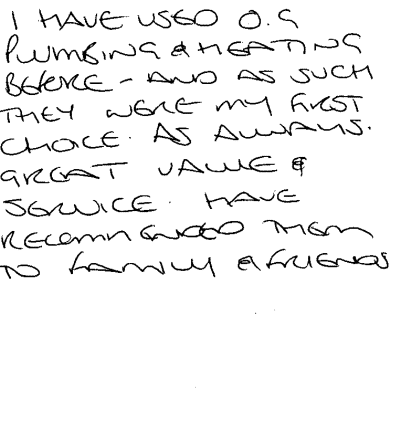 I HAVE USED O.G
PLUMBING & HEATING
BEFORE - AND AS SUCH
THEY WERE MY FIRST
CHOICE. AS ALWAYS.
GREAT VALUE &
SERVICE. HAVE
RECOMMENDED THEM
TO FAMILY & FRIENDS